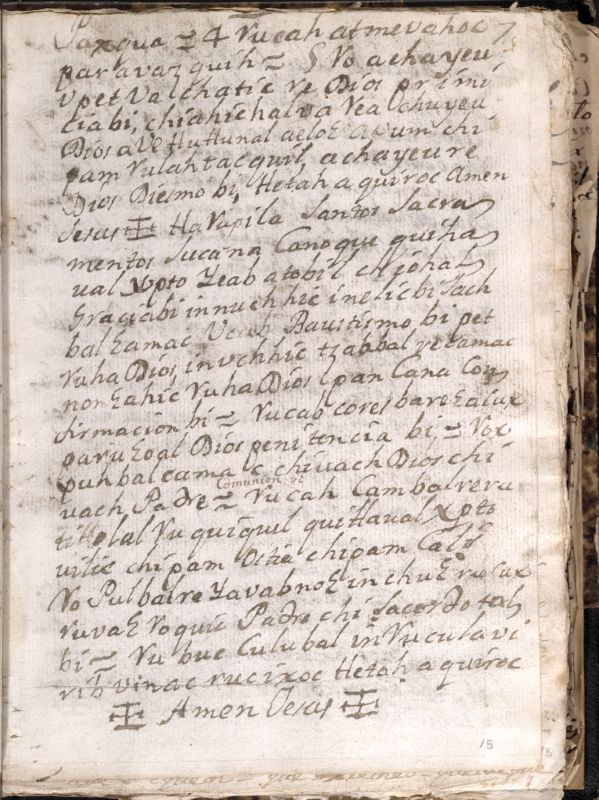 Pasqua = 4 rucah atmevahoc 7
paravaz quih = 5 Vo achayeu
vpet Valchatic re Dios primi
ciabi, chianichalva rea chuyeu
Dios
pam rulahtacquil, achayeure
Dios Diesmo bi, Hetah a quiroc Amen
Jesus ✠ Ha rupila Santos Sacra
mentos Lucana Canoque quiha
ual Xpto Yeab atobil chjohal
Graciabi innuchhic inelicbi Sach
bal Eamac Ucah Baustismo, bi pet
ruha Dios, inuchhic tzabbal re camac
nonEahic ruha Dios chpan Cana Con
firmacion bi = rucab cores bareEalux
paruEoal Dios penitencia bi, = Vox
puhbal camac chivach Dios chi
Comunion, re
uach Padre = rucah Cambalreru
tittolal ru quiquel quiHaual Xpto
uilic chipam Ostia chipam Calis
Vo Pulbalre YavabnoE inchuE rucux
ruvaE Voquic Padre chi Sacerdotal
bi = ru buc Culubal in Vuculavi
rib vinac rucixoc Hetah a quiroc
✠ Amen Jesus ✠
15